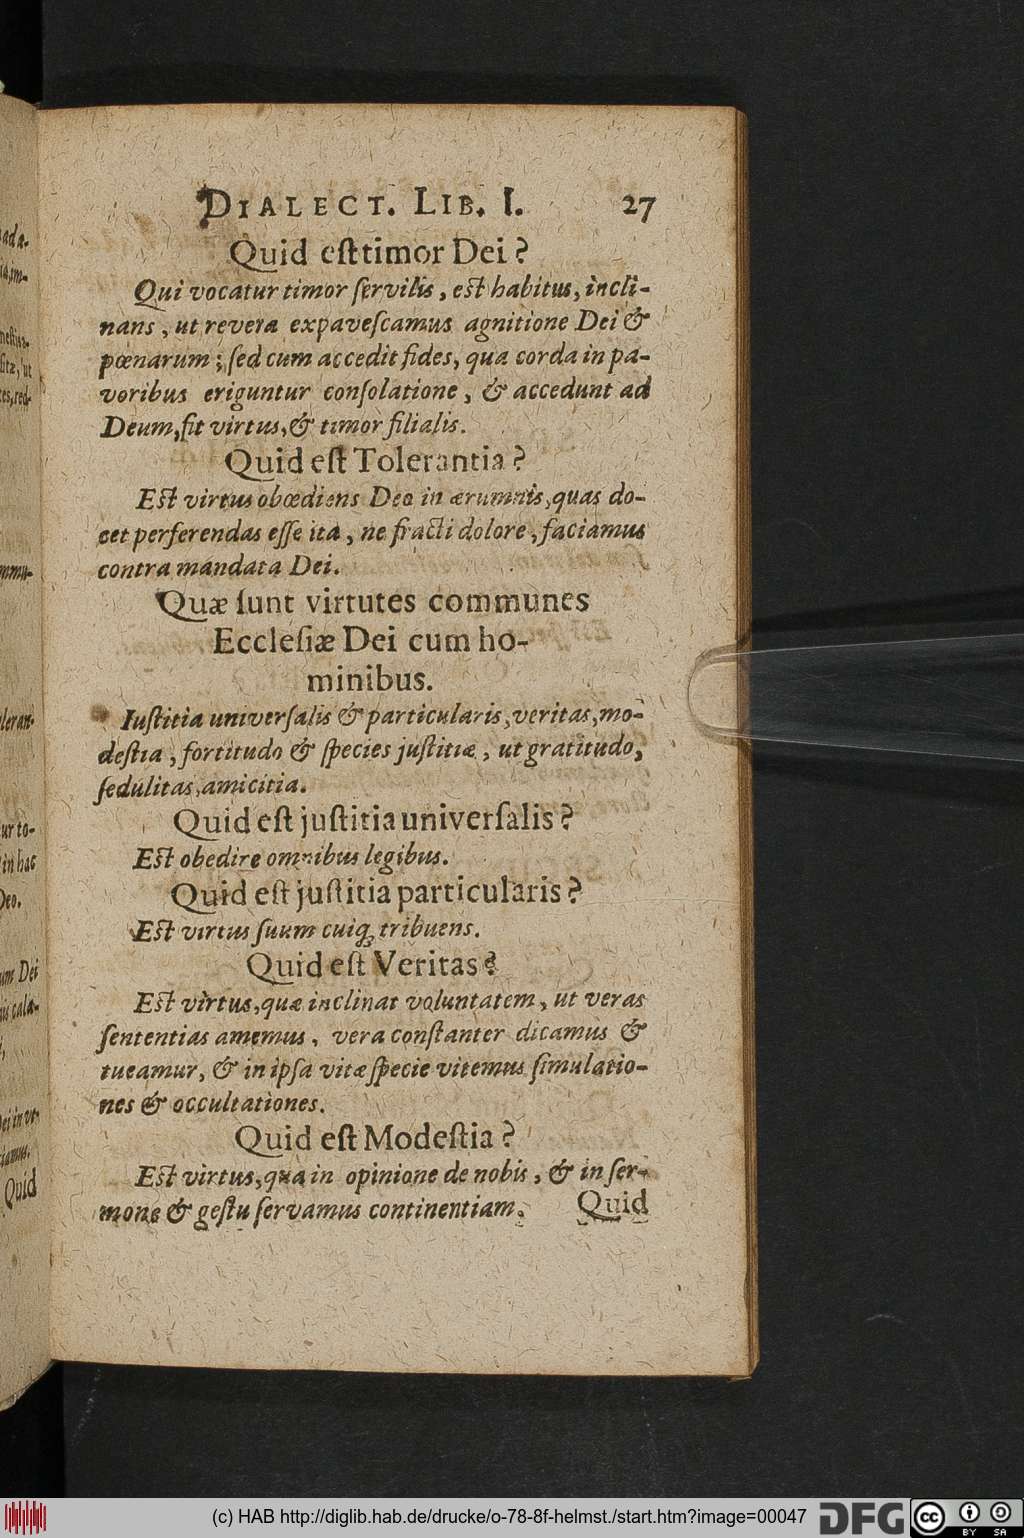 DIALECT. LIB. I. 27
Quid est timor Dei?
Qui vocatur timor ſervilis, est habitus, incli-
nans, ut revera expaveſcamus agnitione Dei &
pœnarum; ſed cum accedit fides, qua corda in pa-
voribus eriguntur conſolatione, & accedunt ad
Deum, fit virtus, & timor filialis.
Quid eſt Tolerantia?
Est virtus obœdiens Deo in ærumnis, quas do-
cet perferendas eſſe ita, ne fracti dolore, faciamus
contra mandata Dei.
Quæ ſunt virtutes communes
Eccleſiæ Dei cum ho-
minibus.
Iuſtitia univerſalis & particularis, veritas, mo-
deſtia, fortitudo & ſpecies juſtitiæ, ut gratitudo,
ſedulitas, amicitia.
Quid eſt juſtitia univerſalis?
Est obedire omnibus legibus.
Quid eſt juſtitia particularis?
Est virtus ſuum cuiq; tribuens.
Quid eſt Veritas?
Est virtus, quæ inclinat voluntatem, ut veras
ſententias amemus, vera conſtanter dicamus &
tueamur, & in ipſa vitæ ſpecie vitemus ſimulatio-
nes & occultationes.
Quid eſt Modeſtia?
Est virtus, qua in opinione de nobis, & in ſer-
mone & geſtu ſervamus continentiam. Quid
(c) HAB http://diglib.hab.de/drucke/o-78-8f-helmst./start.htm?image=00047 DFG cc BY SA